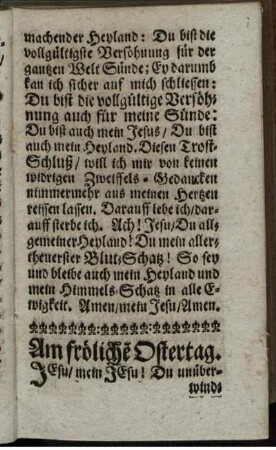 machender Heyland: Du bist die
vollgültigste Versöhnung für der
gantzen Welt Sünde; Ey darumb
kan ich sicher auf mich schliessen:
Du bist die vollgültige Versöh-
nung auch für meine Sünde:
Du bist auch mein Jesus/ Du bist
auch mein Heyland. Diesen Trost-
Schluß/ will ich mir von keinen
widrigen Zweiffels-Gedancken
nimmermehr aus meinen Hertzen
reissen lassen. Darauff lebe ich/ dar-
auff sterbe ich. Ach! Jesu/ Du all-
gemeiner Heyland! Du mein aller-
theuerster Blut-Schatz! So sey
und bleibe auch mein Heyland und
mein Himmels-Schatz in alle E-
wigkeit. Amen/ mein Jesu/ Amen.
Am frölichē Ostertag.
JEsu/ mein JEsu! Du unüber-
winds